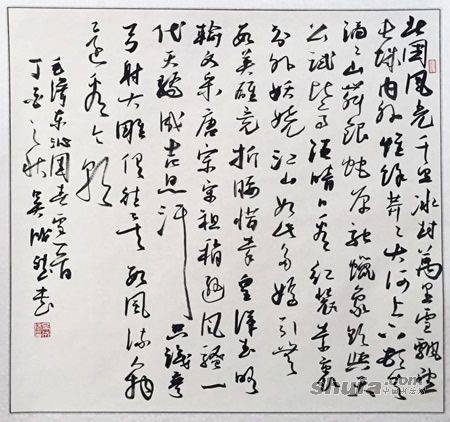 北国风光千里冰封萬里雪飘望
长城内外惟馀莽々大河上下顿失
滔々山舞银蛇原驰蜡象欲与天
公试比高须晴日看红装素裹
分外妖娆江山如此多娇引无
数英雄竞折腰惜秦皇汉武略
输文采唐宗宋祖稍逊风骚一
代天骄成吉思汗只识弯
弓射大雕俱往矣数风流人物
还看今朝
毛泽东沁园春雪一首
丁酉之秋吴书
shufa.com
中国书法网